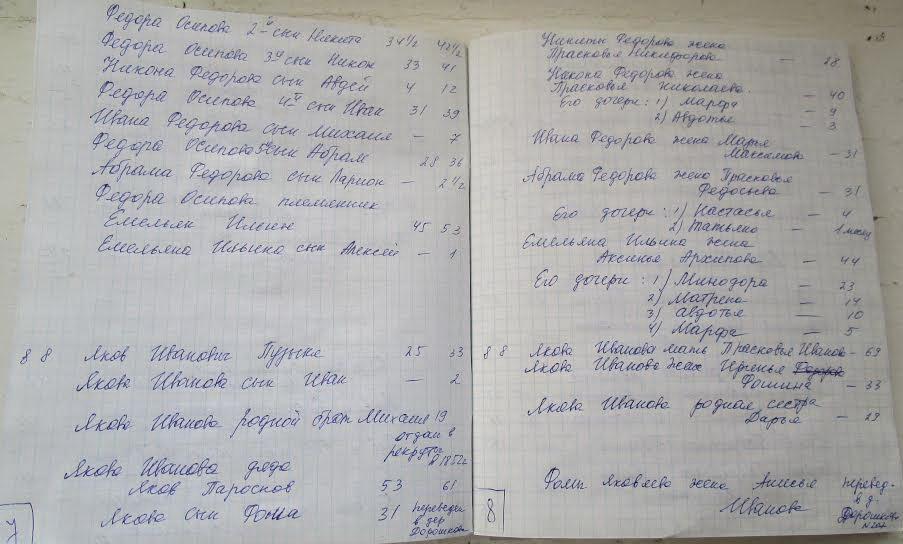 Федора Осипова 2й сын Никита 34 1/2 42 1/2
Федора Осипова 3й сын Никон 33 41
Никона Федорова сын Авдей 4 12
Федора Осипова 4й сын Иван 31 39
Ивана Федорова сын Михаил — 7
Федора Осипова 5й сын Абрам 28 36
Абрама Федорова сын Ларион — 2 1/2
Федора Осипова племянник
Емельян Ильин 45 53
Емельяна Ильина сын Алексей — 1
8 8 Яков Иванович Пузыня 25 33
Якова Иванова сын Иван — 2
Якова Иванова родной брат Михаил 19
отдан в
рекруты
в 1852г
Якова Иванова дядя
Яков 53 61
Якова сын Фома 31 переведен
в дер
Дорошково
7
Никиты Федорова жена
Прасковья Никифорова — 28
Никона Федорова жена
Прасковья Николаева — 40
Его дочери: 1) Марфа — 9
2) Авдотья — 3
Ивана Федорова жена Марья
Максимова — 31
Абрама Федорова жена Прасковья
Федосьева — 31
Его дочери: 1) Настасья — 4
2) Татьяна — 1 месяц
Емельяна Ильина жена
Аксинья Архипова — 44
Его дочери: 1) Минодора — 23
2) Матрена — 14
3) Авдотья — 10
4) Марфа — 5
8 8 Якова Иванова мать Прасковья Иванов — 69
Якова Иванова жена Ефросинья Федорова
Фомина — 33
Якова Иванова родная сестра
Дарья — 29
Фомы Яковлева жена Анисья перевед.
Иванова в д.
Дорошково
N207
8